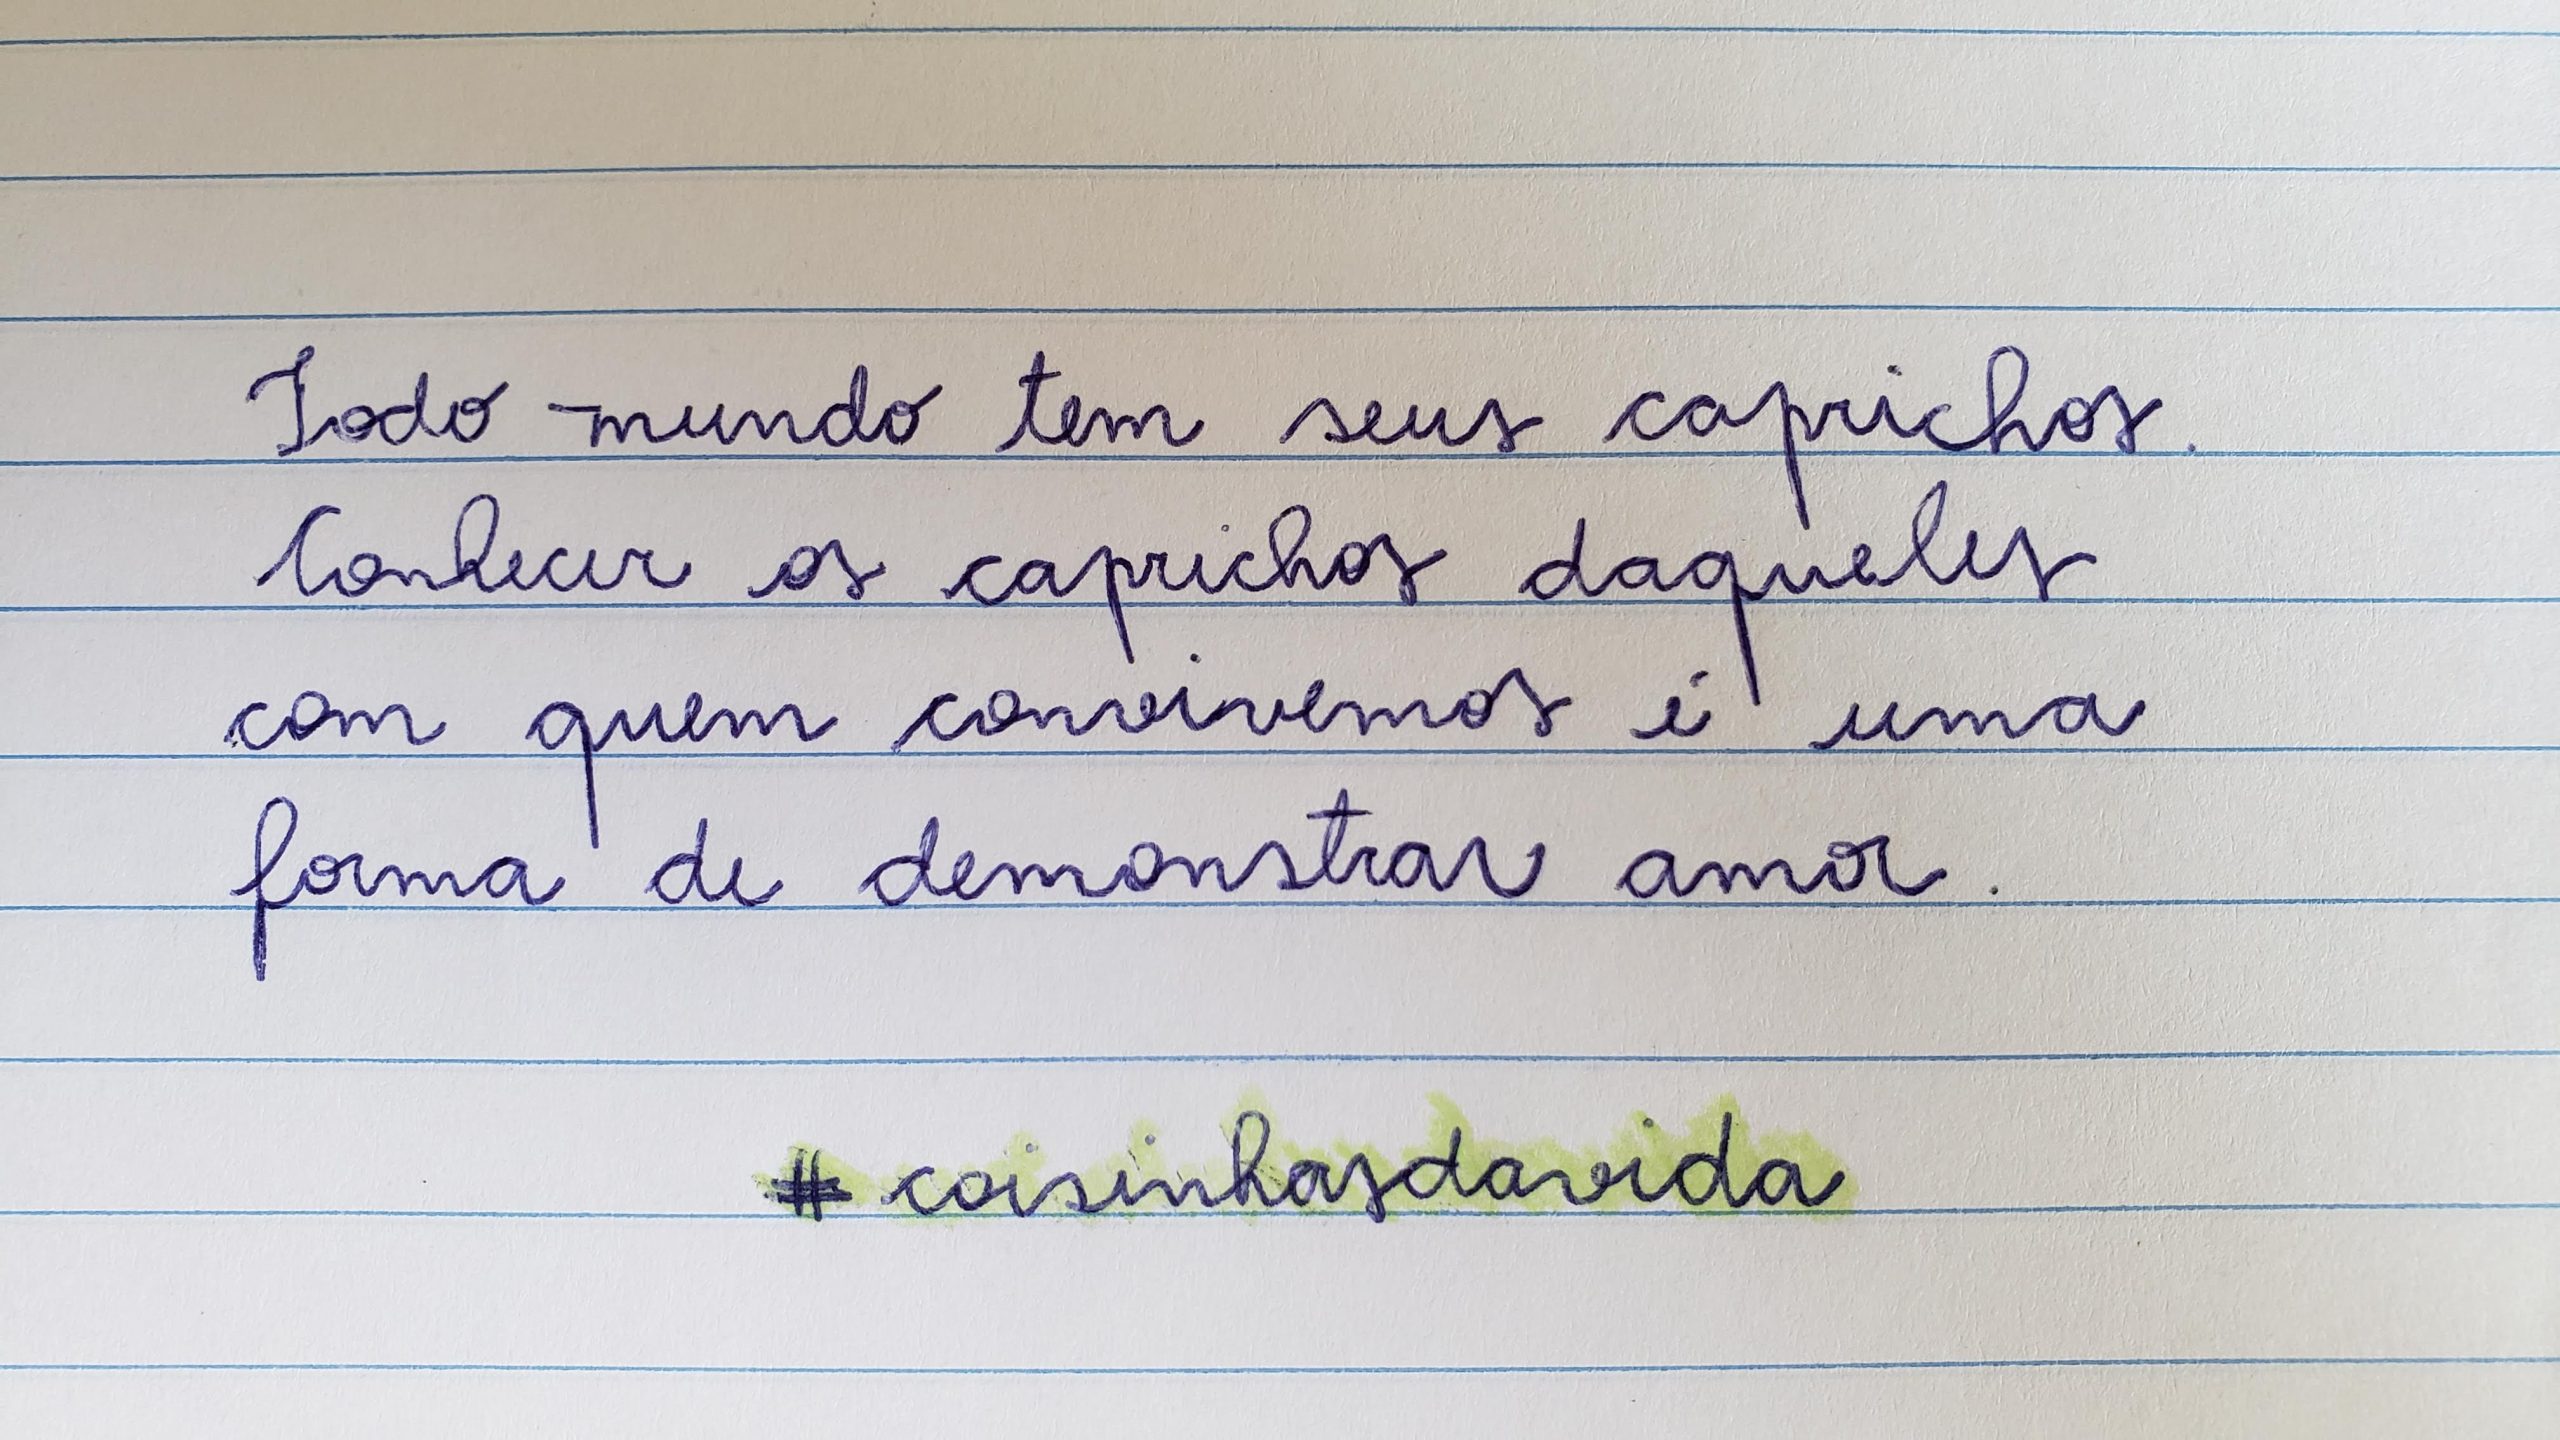 Todo mundo tem seus caprichos.
Conhecer os caprichos daqueles
com quem convivemos é uma
forma de demonstrar amor.
#coisinhasdavida